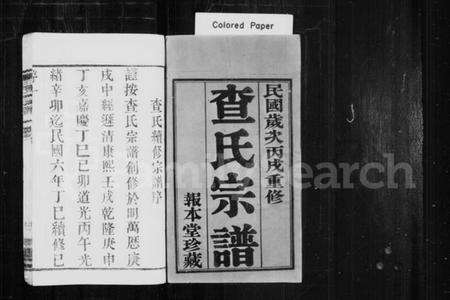 Colored Paper
民國歲次丙戌重修
查氏宗譜
報本堂珍藏
查氏續修宗譜序
謹按查氏宗譜創修於明萬曆庚
戌中經遜清康熙壬戌乾隆庚申
丁亥嘉慶丁巳己卯道光丙午光
緒辛卯迄民國六年丁巳續修已